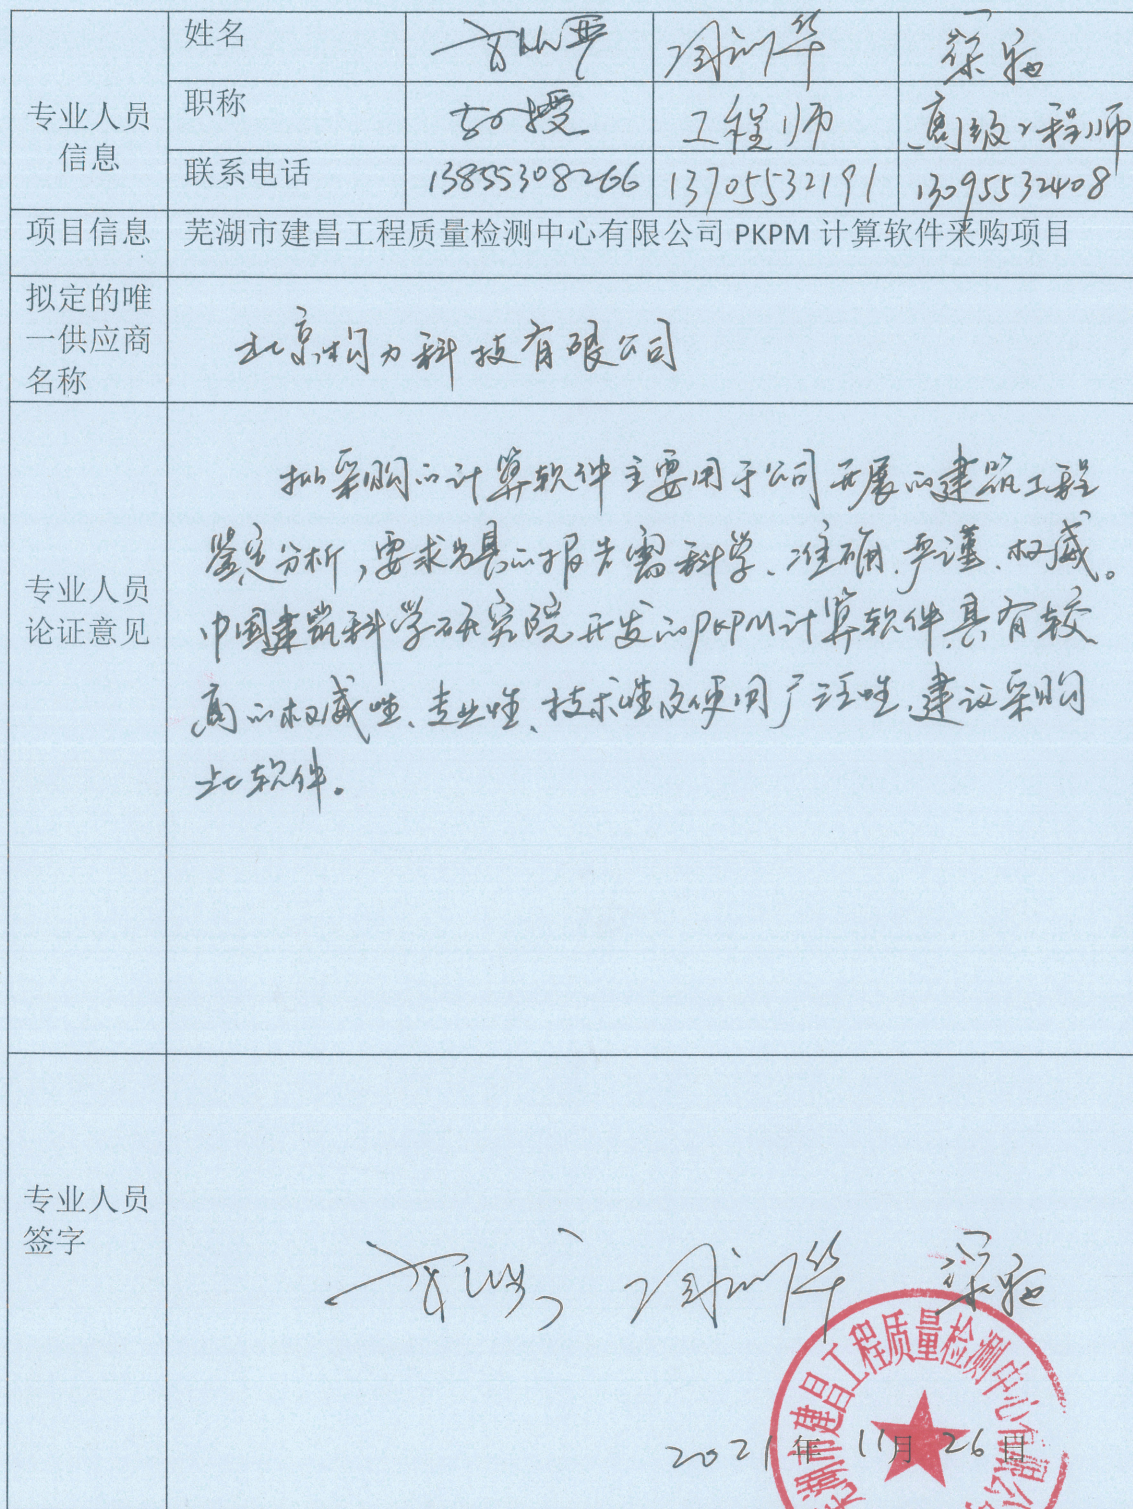 姓名 周训华 梁驰
专业人员
信息
职称 教授 工程师 高级工程师
联系电话 13855308266 13705532191 13095532408
项目信息 芜湖市建昌工程质量检测中心有限公司 PKPM 计算软件采购项目
拟定的唯
一供应商
名称
北京构力科技有限公司
专业人员
论证意见
拟采购的计算软件主要用于公司开展的建筑工程
鉴定分析,要求出具的报告需科学、准确、严谨、权威。
中国建筑科学研究院开发的PKPM计算软件具有较
高的权威性、专业性、技术性及使用广泛性,建议采购
此软件。
专业人员
签字
周训华 梁驰
芜湖市建昌工程质量检测中心有限公
2021年11月26日